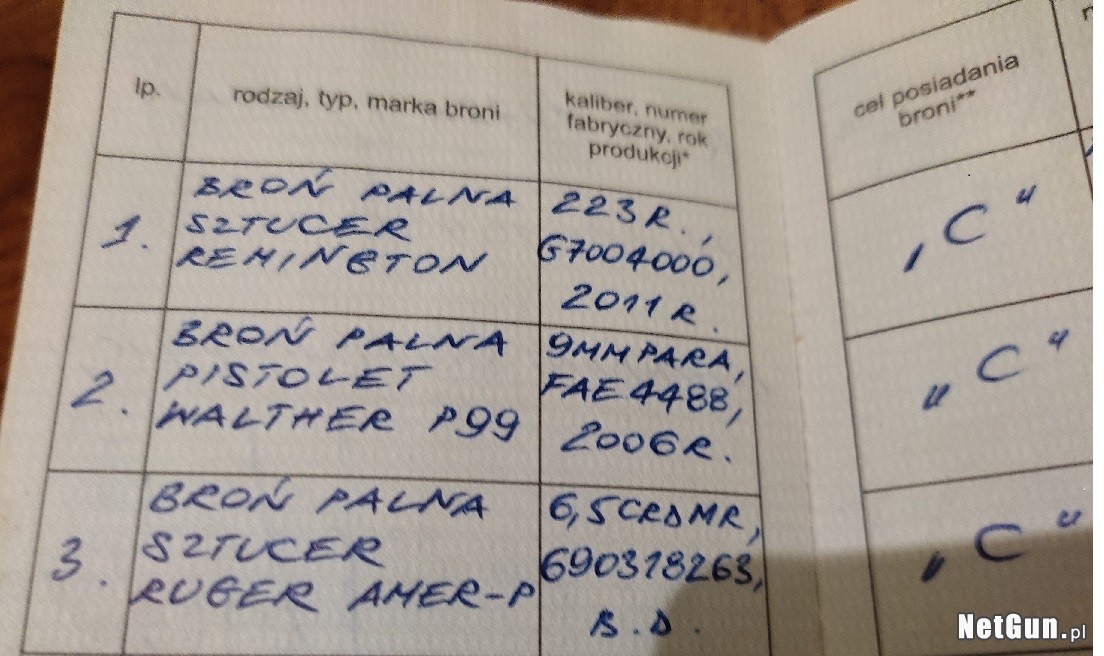 lp.
rodzaj, typ, marka broni
kaliber, numer
fabryczny, rok
produkcji*
cel posiadania
broni**
1.
BROŃ PALNA
SZTUCER
REMINGTON
223R.,
G7004000,
2011R.
„C"
2.
BROŃ PALNA
PISTOLET
WALTHER P99
9MMPARA,
FAE4488,
2006R.
„C"
3.
BROŃ PALNA
SZTUCER
RUGER AMER-P
6,5CRDMR,
690318263,
B.D.
„C"
NetGun.pl